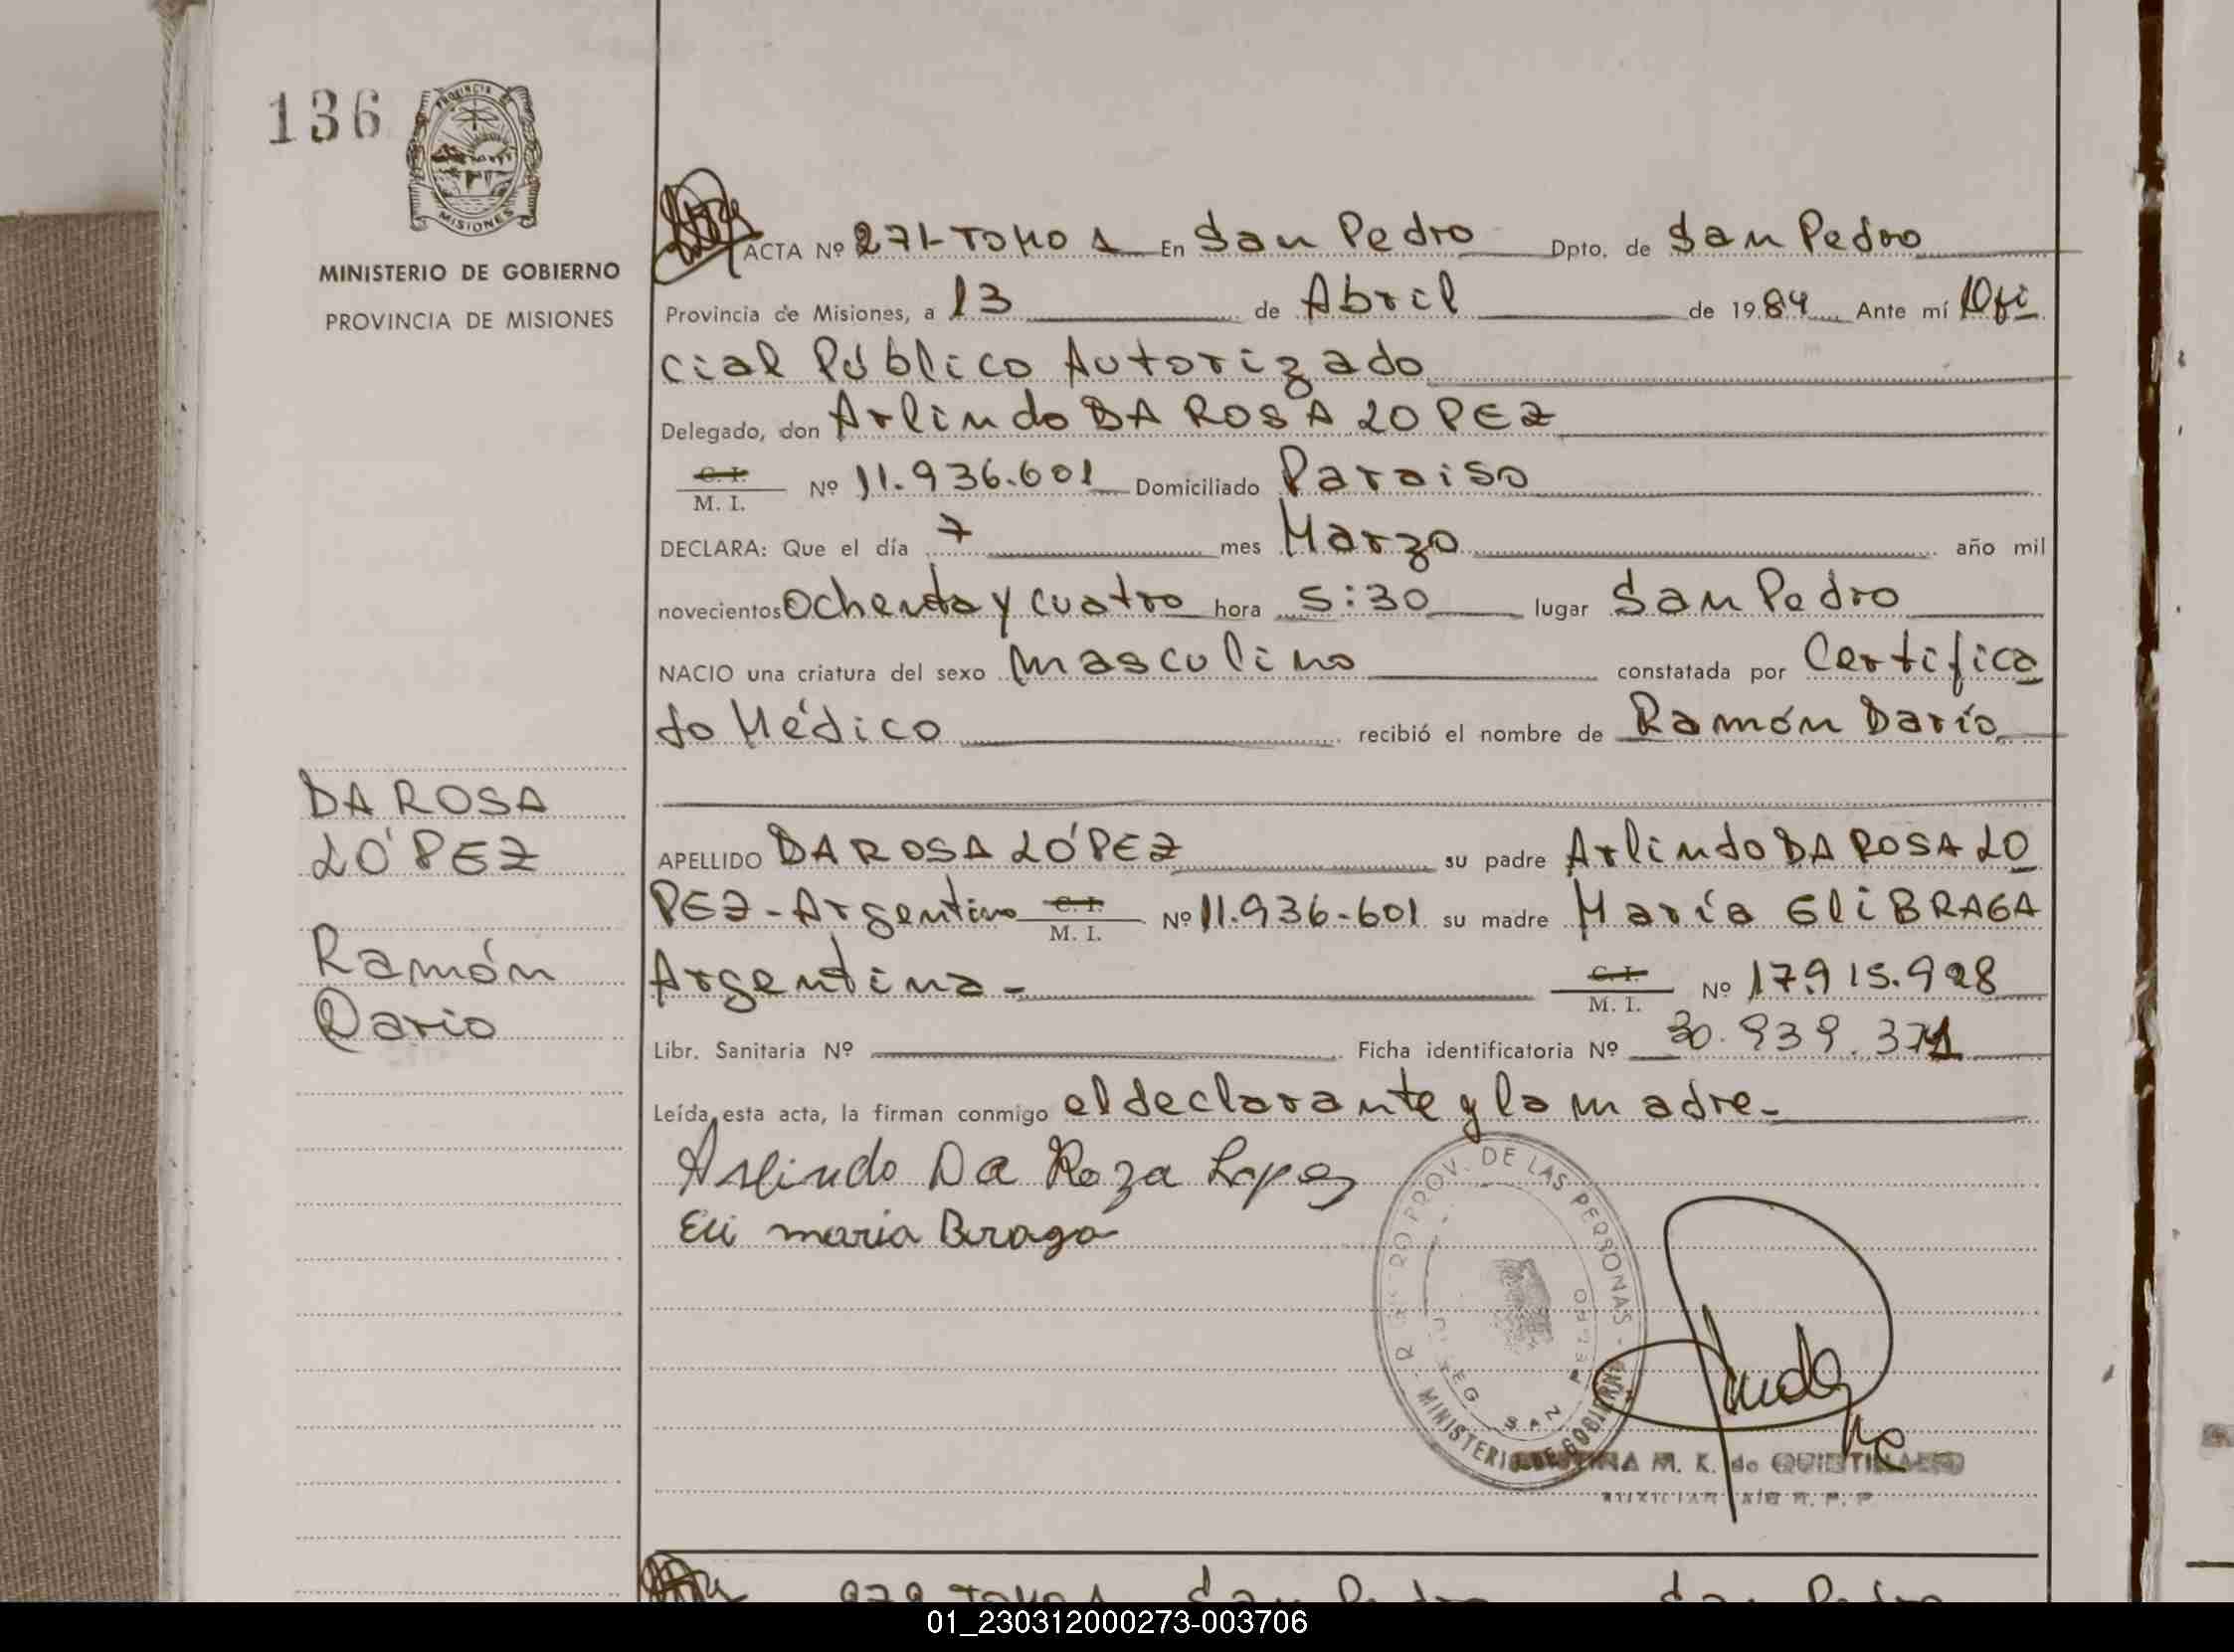 136
PROVINCIA DE
MISIONES
MINISTERIO DE GOBIERNO
PROVINCIA DE MISIONES
DA ROSA
LÓPEZ
Ramón
Dario
ACTA Nº 271-TOMO 1 En San Pedro Dpto. de San Pedro
Provincia de Misiones, a 13 de Abril de 1984 Ante mí Ofi
cial Público Autorizado
Delegado, don Arlindo DA ROSA LOPEZ
C. I.
M. I. Nº 11.936.601 Domiciliado Paraiso
DECLARA: Que el día 7 mes Marzo año mil
novecientos Ochenta y cuatro hora 5:30 lugar San Pedro
NACIO una criatura del sexo masculino constatada por Certifica
do Médico recibió el nombre de Ramón Darío
APELLIDO DA ROSA LÓPEZ su padre Arlindo DA ROSA LO
PEZ - Argentino C. I. M. I. Nº 11.936.601 su madre María Eli BRAGA
Argentina - C. I. M. I. Nº 17.915.928
Libr. Sanitaria Nº Ficha identificatoria Nº 30.939.371
Leída esta acta, la firman conmigo el declarante y la madre.-
Arlindo Da Roza Lopez
Eli maria Braga
PROV. DE LAS PERSONAS -
SAN PEDRO
MINISTERIO DE GOBIERNO
M. K. de QUINTILLANO
AUXILIAR R. P. P.
San Pedro San Pedro
01_230312000273-003706